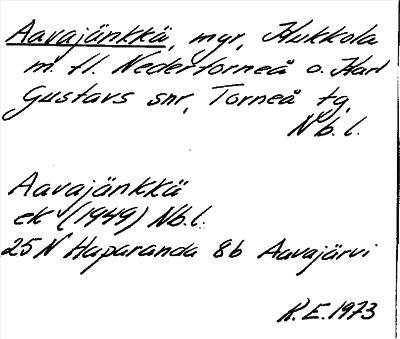 Aavajänkkä, myr, Kukkola
m. fl. Nedertorneå o. Karl
Gustavs snr, Torneå tg,
Nb. l.
Aavajänkkä
ek (1949) Nb.l.
25 N Haparanda 8b Aavajärvi
K.E. 1973